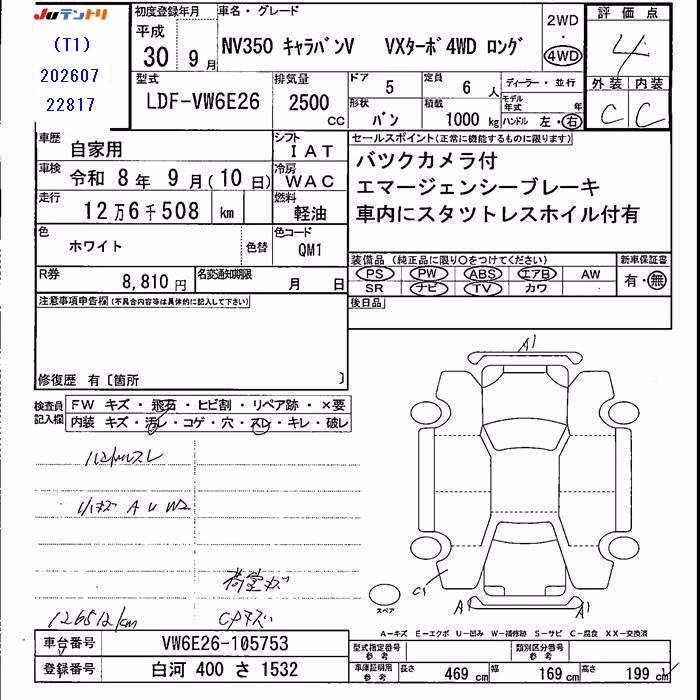 Juテントリ
(T1)
202607
22817
初度登録年月
平成
30 年 9 月
車名・グレード
NV350 キャラバンV VXターボ4WD ロング
2WD
・
4WD
評価点
4
外装 内装
C C
型式
LDF-VW6E26
排気量
2500 cc
ドア 5
定員 6 人
ディーラー・並行
形状 バン
積載 1000 kg
モデル年式 年
ハンドル 左・右
車歴 自家用
シフト IAT
車検 令和 8 年 9 月 (10 日)
冷房 WAC
走行 12万6千508 km
燃料 軽油
色 ホワイト 色替
色コード QM1
R券 8,810 円
名変通知期限 月 日
セールスポイント(正常に機能するものに限ります)
バックカメラ付
エマージェンシーブレーキ
車内にスタツトレスホイル付有
装備品(純正品に限り○をつけてください)
新車保証書
PS PW ABS エアB AW
SR ナビ TV カワ
有・無
後日品
注意事項申告欄(不具合内容等は具体的に記入して下さい)
修復歴 有〔箇所 〕
検査員記入欄
FW キズ・飛石・ヒビ割・リペア跡・×要
内装 キズ・汚レ・コゲ・穴・スレ・キレ・破レ
ハンドルスレ
小キズ A U W2
荷室キズ
126512km
A1
C1
A1
A1
スペア
A−キズ E−エクボ U−凹み W−補修跡 S−サビ C−腐食 XX−交換済
車台番号 VW6E26-105753
登録番号 白河 400 さ 1532
型式指定番号 参考
類別区分番号 参考
車庫証明用 参考
長さ 469 cm
幅 169 cm
高さ 199 cm